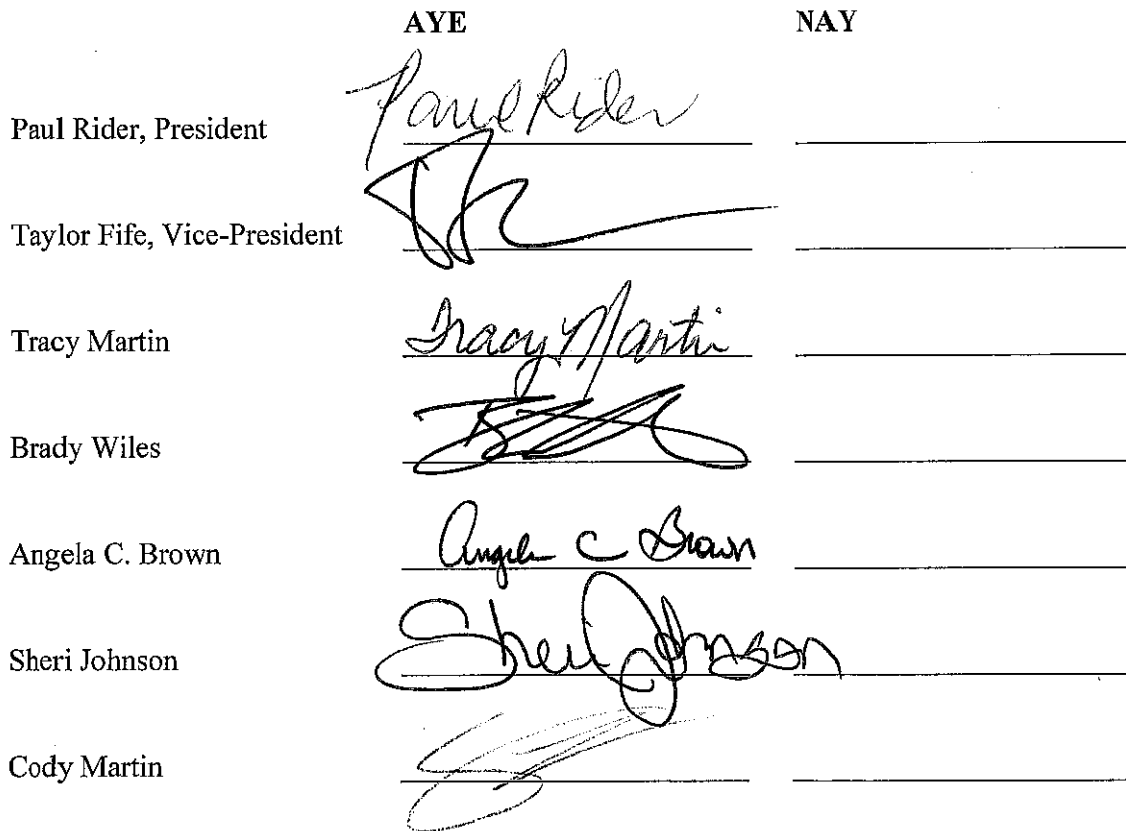 AYE NAY
Paul Rider, President Paul Rider
Taylor Fife, Vice-President
Tracy Martin Tracy Martin
Brady Wiles
Angela C. Brown Angela C Brown
Sheri Johnson Sheri Johnson
Cody Martin